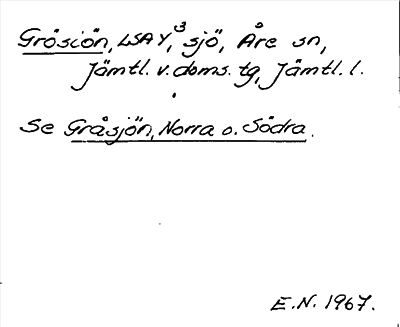 Gråsiön, LSA Y,³ sjö, Åre sn,
Jämtl. v. doms. tg, Jämtl. l.
Se Gråsjön, Norra o. Södra.
E.N. 1967.